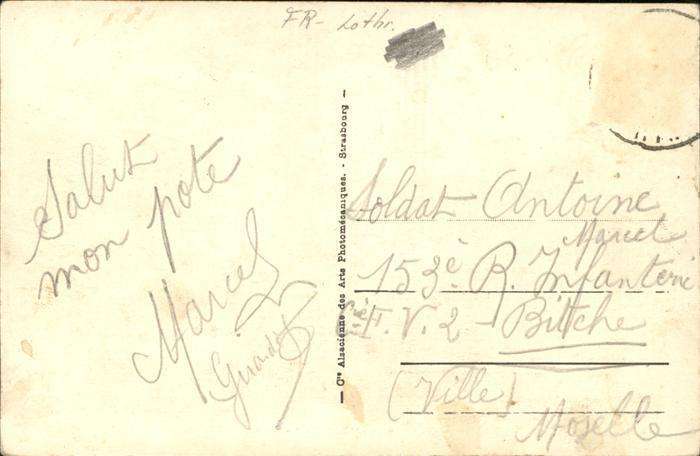 FR - Lothr.
Salut
mon pote
Marcel
— Cie Alsacienne des Arts Photomécaniques. - Strasbourg —
Soldat Antoine
Marcel
153è R. Infanterie
F.V.2 - Bitche
(Ville)
Moselle